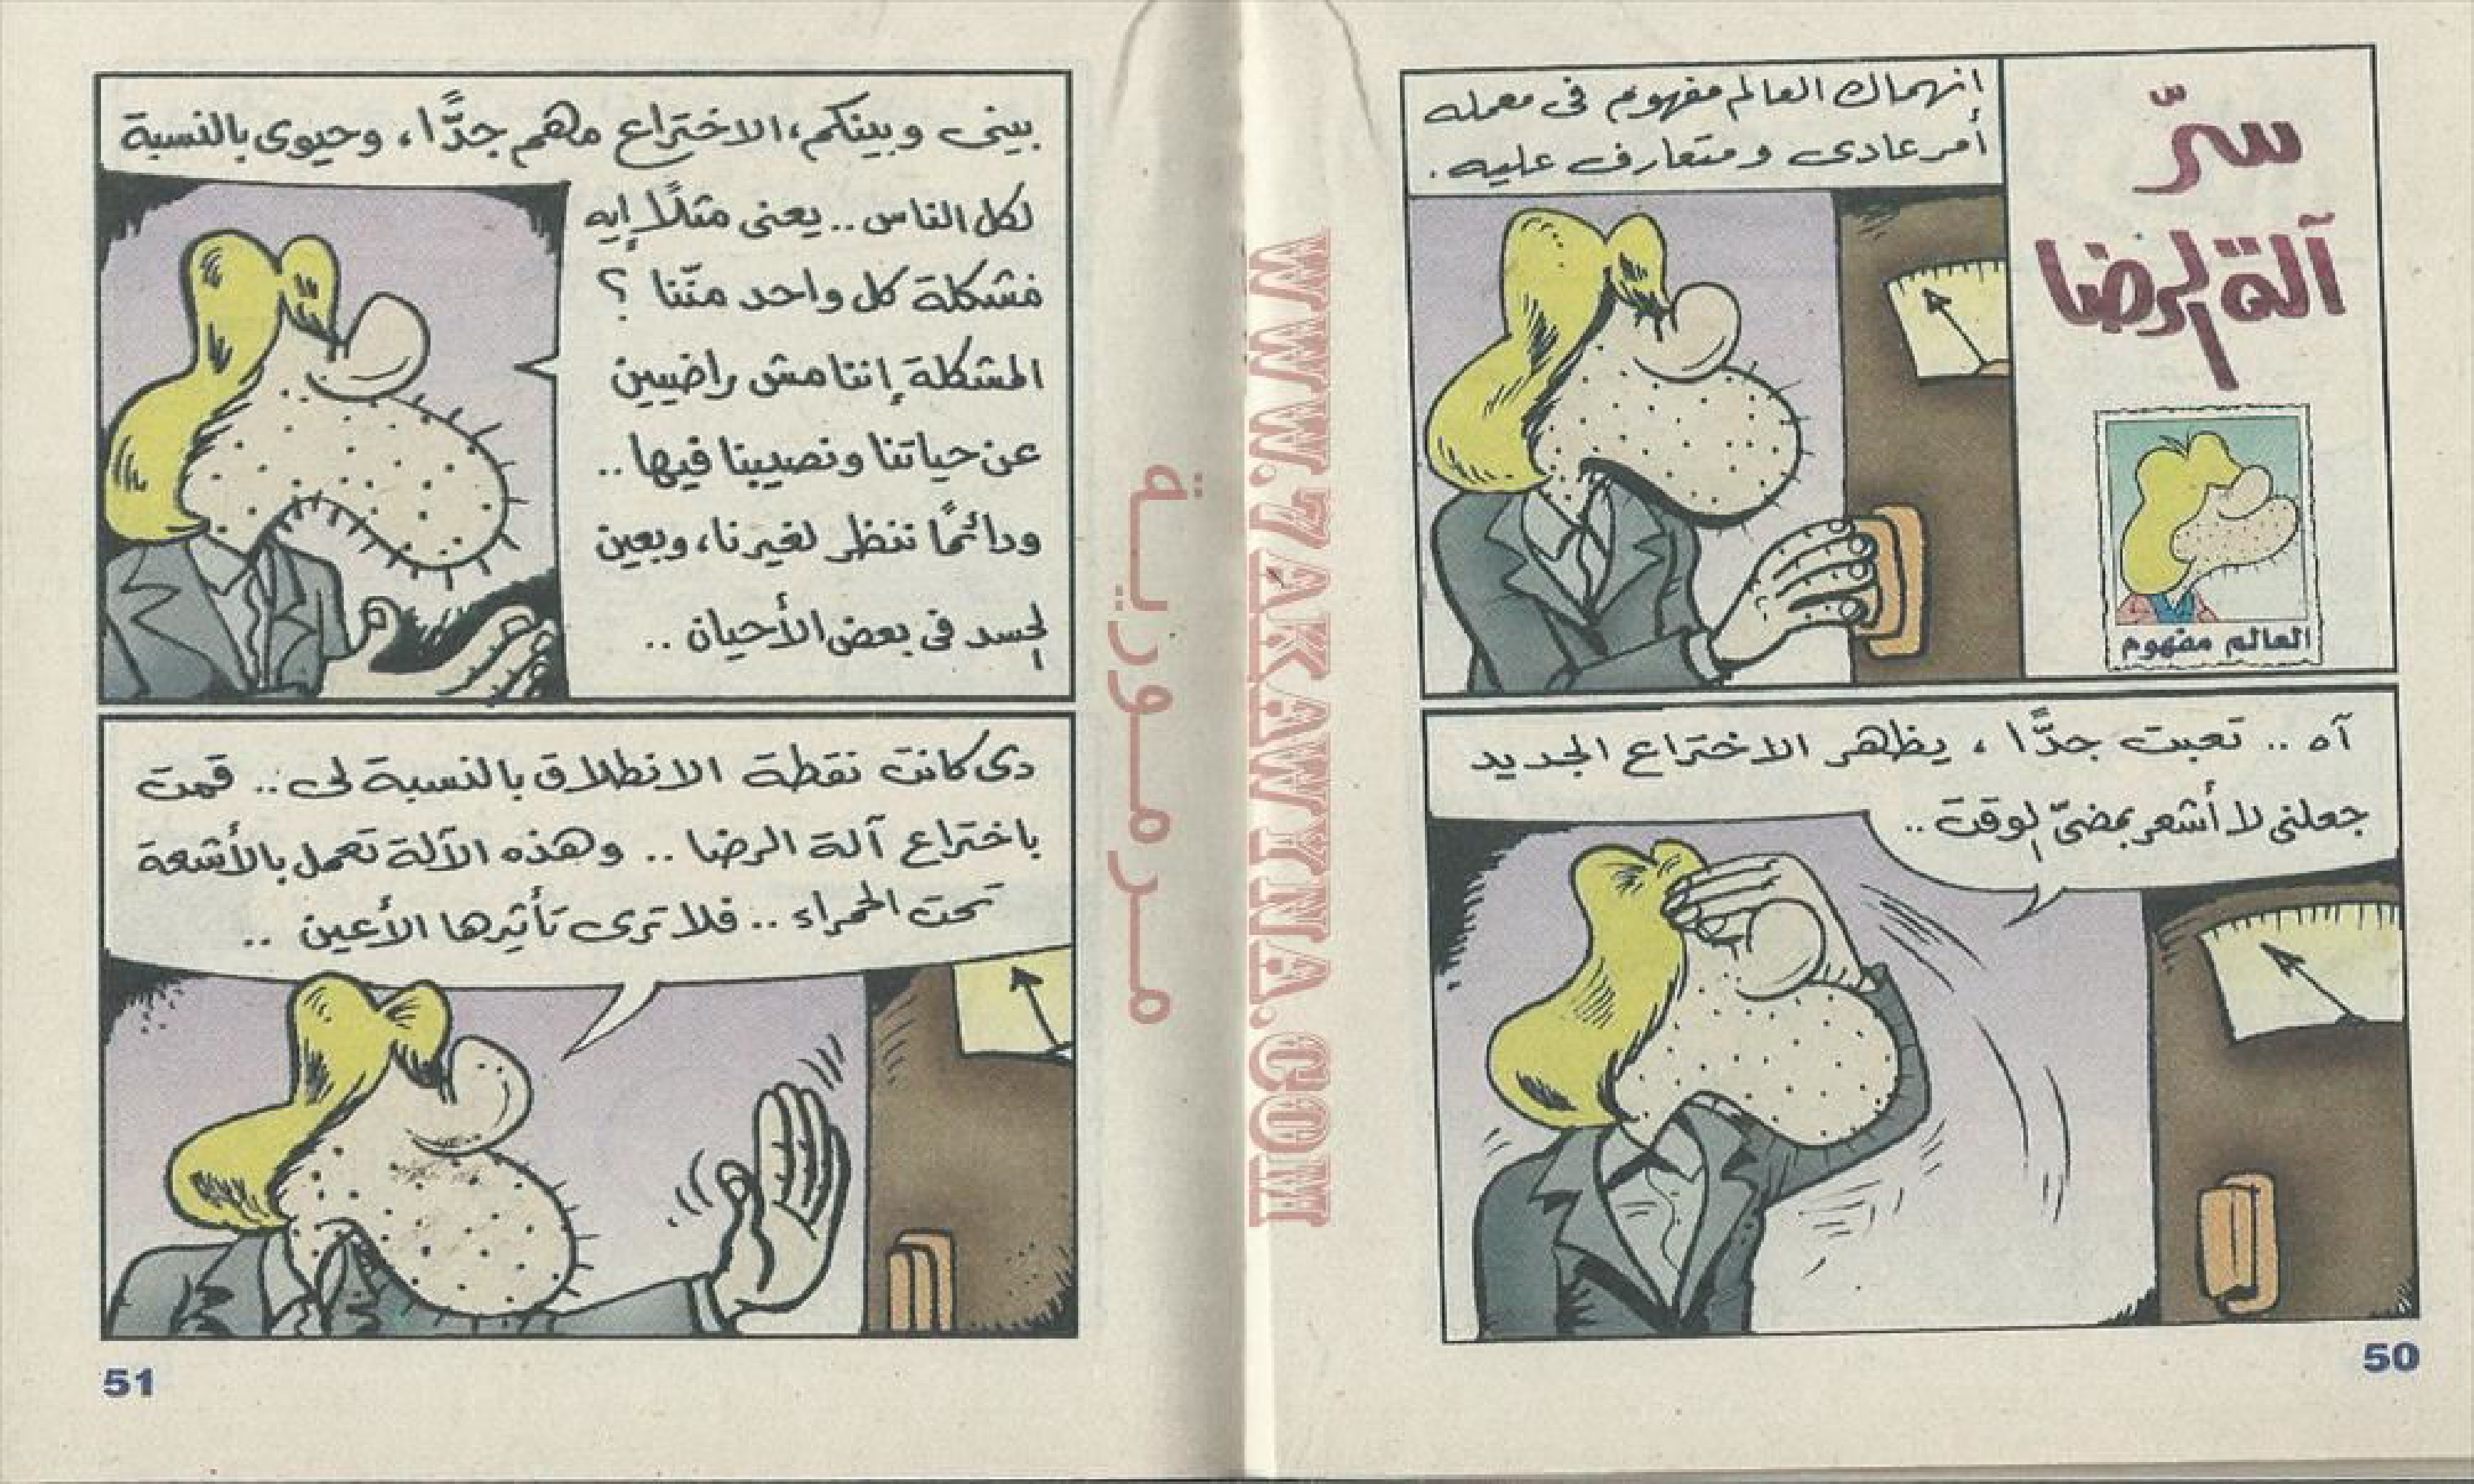 سرّ
آلة الرضا
العالم مفهوم
إنهماك العالم مفهوم فى معمله
أمر عادى ومتعارف عليه.
آه .. تعبت جدًّا، يظهر الاختراع الجديد
جعلنى لا أشعر بمضىّ الوقت ..
50
بينى وبينكم، الاختراع مهم جدًّا، وحيوى بالنسبة
لكل الناس .. يعنى مثلًا إيه
مشكلة كل واحد منّنا ؟
المشكلة إننا مش راضيين
عن حياتنا ونصيبنا فيها ..
ودائمًا ننظر لغيرنا، وبعين
الحسد فى بعض الأحيان ..
دى كانت نقطة الانطلاق بالنسبة لى .. قمت
باختراع آلة الرضا .. وهذه الآلة تعمل بالأشعة
تحت الحمراء .. فلا ترى تأثيرها الأعين ..
51
WWW.7AKAWYNA.COM
مـرمـوريـة